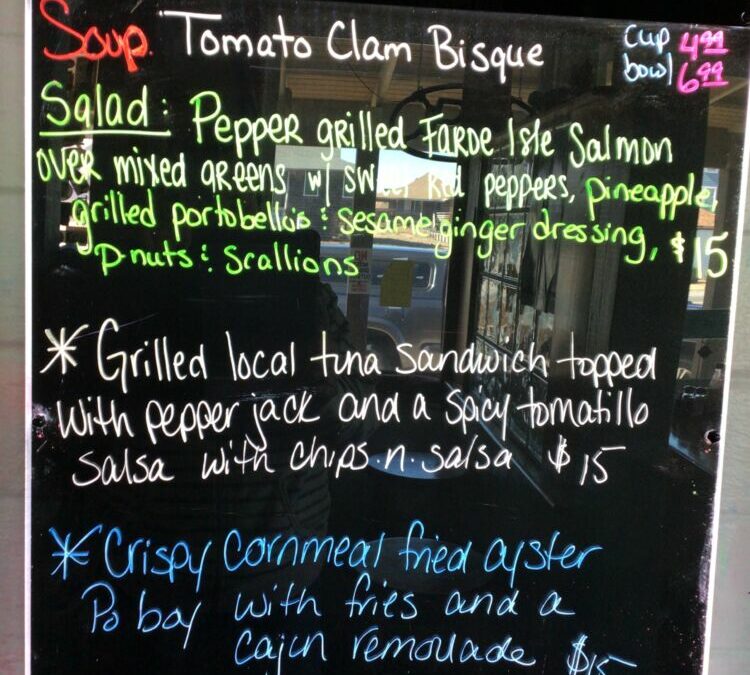 Soup. Tomato Clam Bisque
cup 4.99
bowl 6.99
Salad: Pepper grilled Faroe Isle Salmon
over mixed greens w/ sweet red peppers, pineapple,
grilled portobellos & sesame ginger dressing, $15
p-nuts & scallions
* Grilled local tuna sandwich topped
with pepper jack and a spicy tomatillo
salsa with chips.n.salsa $15
* Crispy cornmeal fried oyster
Po boy with fries and a
cajun remoulade $15